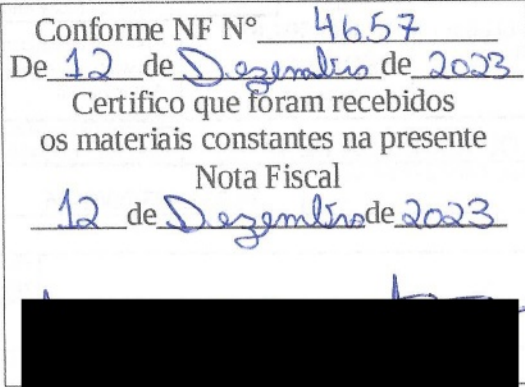 Conforme NF N° 4657
De 12 de Dezembro de 2023
Certifico que foram recebidos
os materiais constantes na presente
Nota Fiscal
12 de Dezembro de 2023